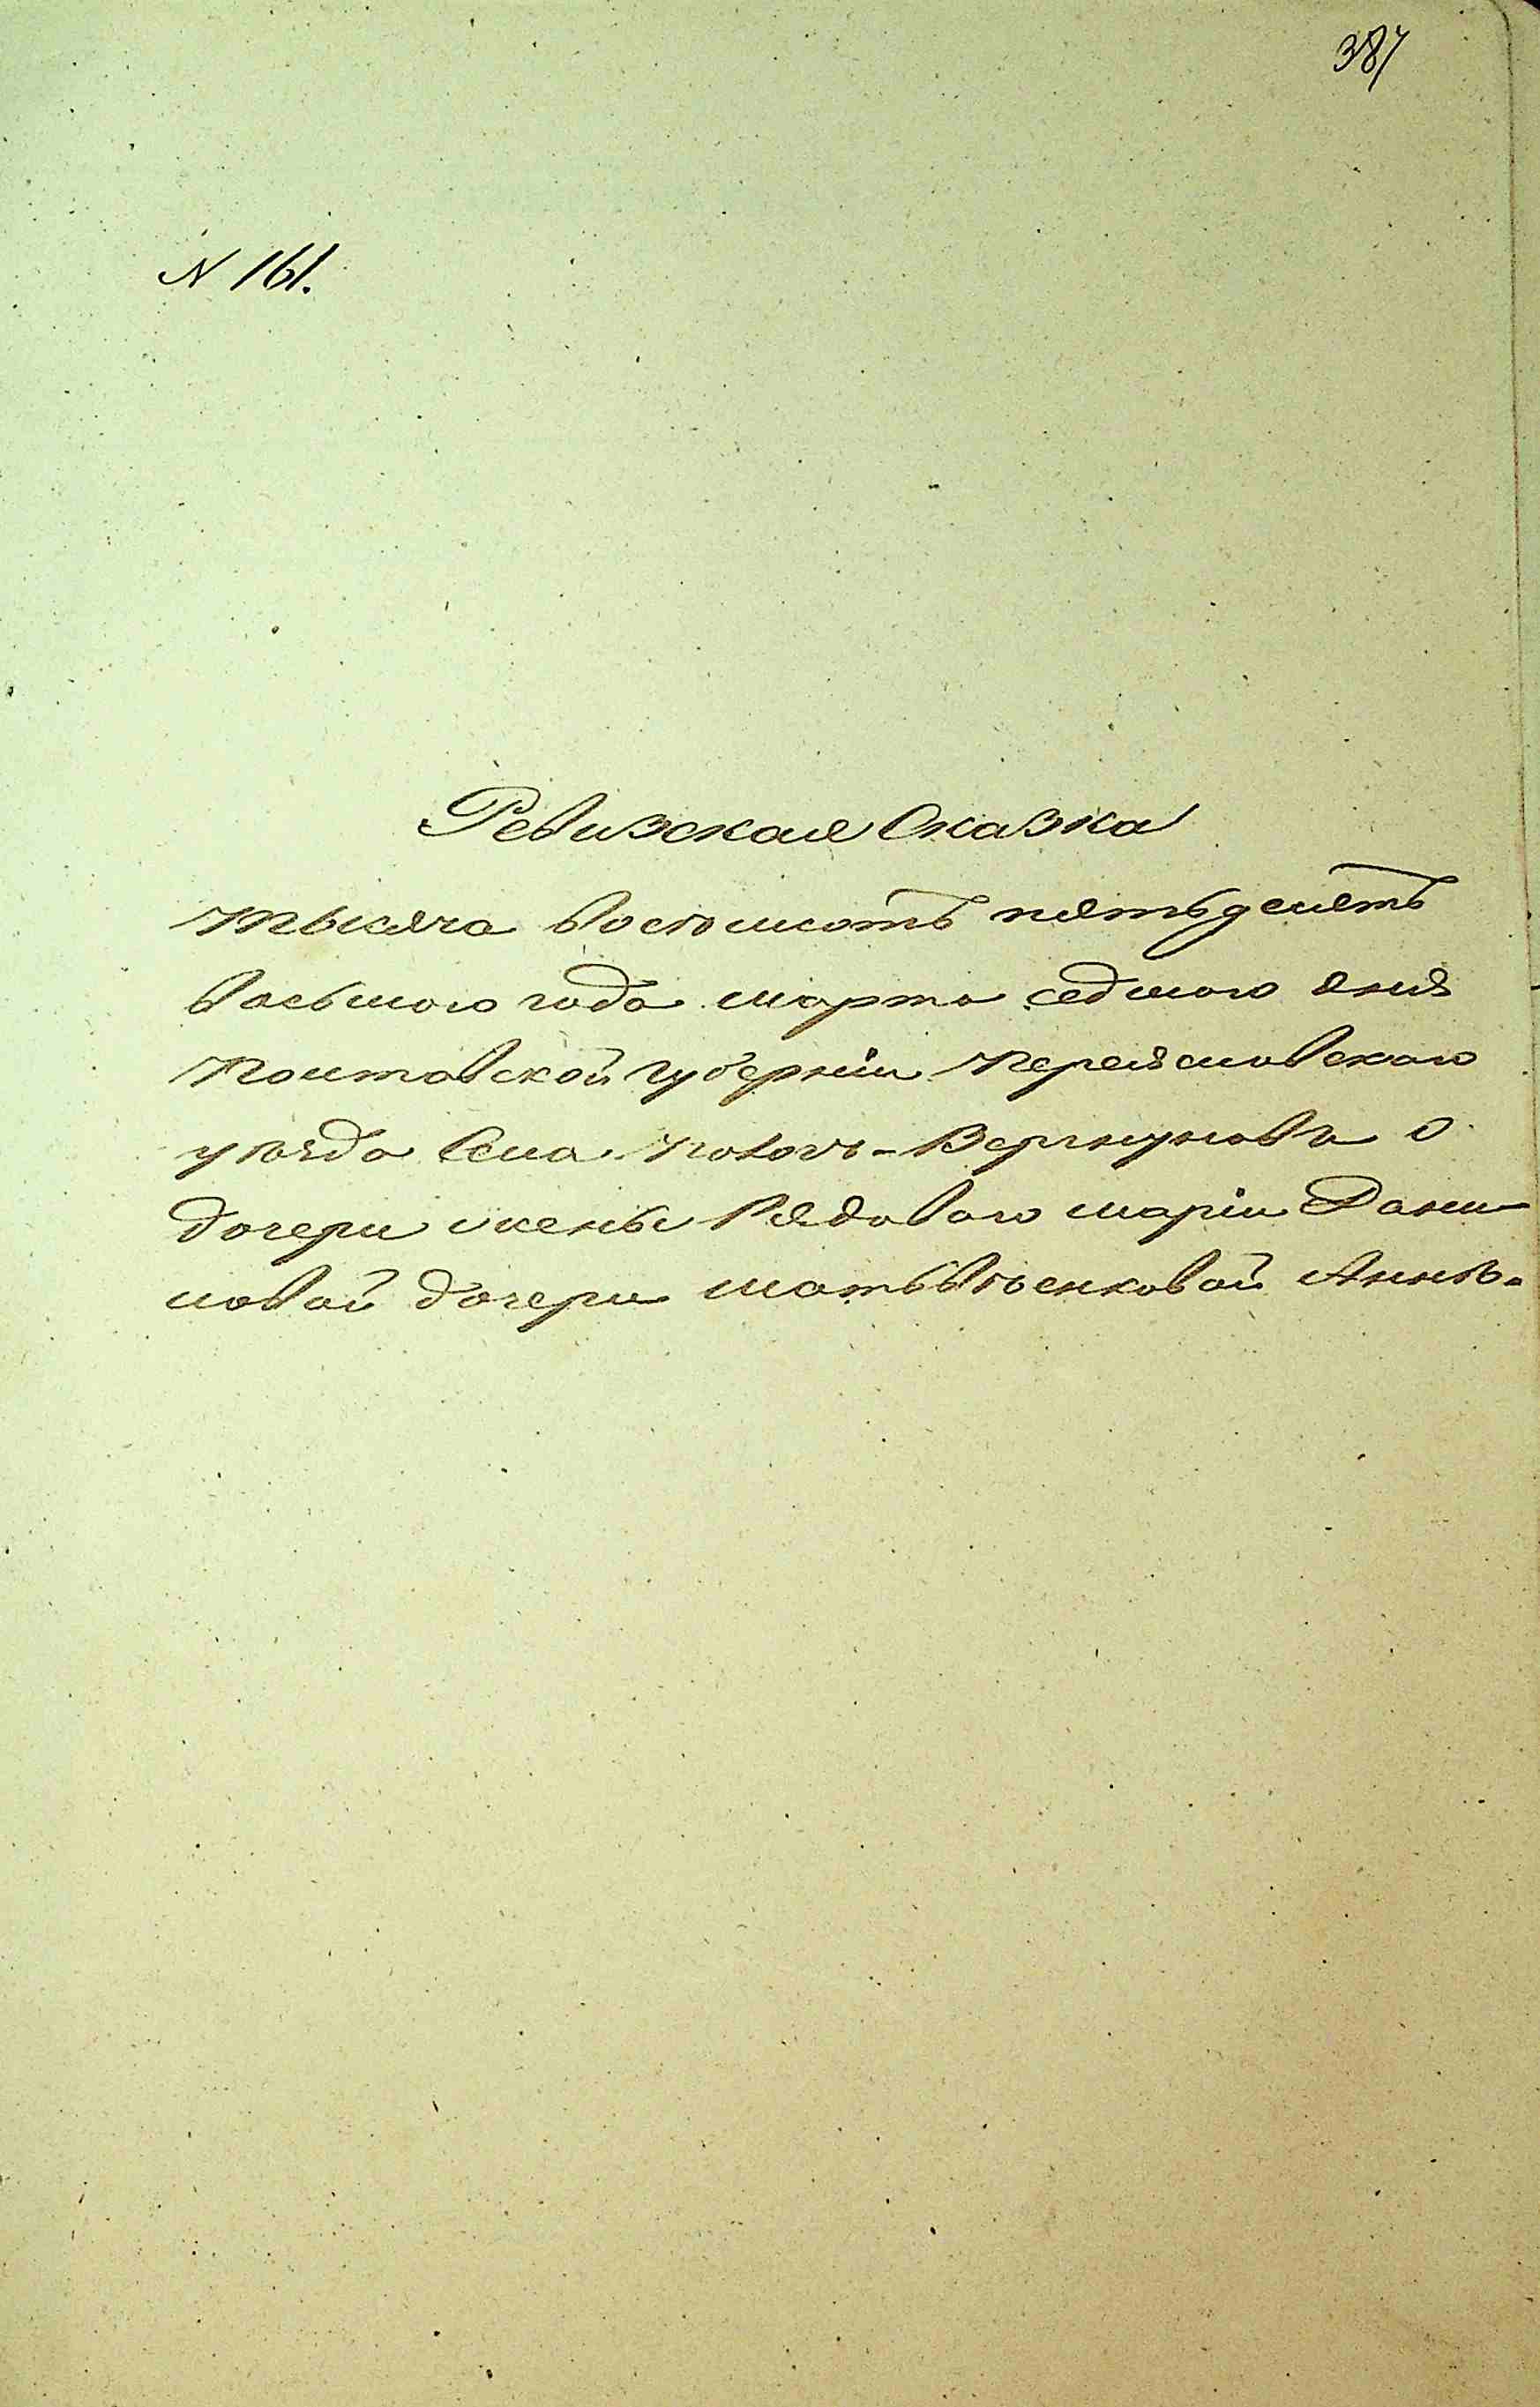 387
N 161.
Ревизская Сказка
тысяча восемсотъ пятьдесятъ
восьмого года марта седмого дня
Полтавской губерніи Переяславского
уѣзда Села
дочери жены Рядового Маріи Дани-
ловой дочери Матвѣенковой Аннѣ.